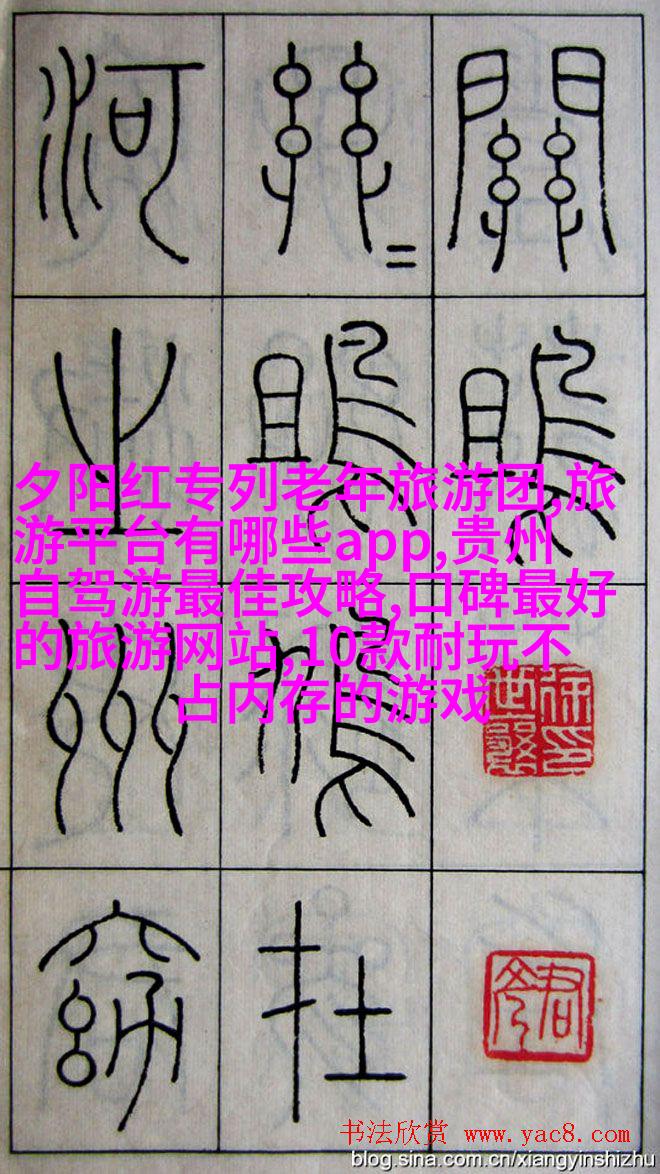 關雎
雎鳩在
河之州窈
夕阳红专列老年旅游团,旅
游平台有哪些app,贵州
自驾游最佳攻略,口碑最好
的旅游网站,10款耐玩不
占内存的游戏
书法欣赏 www.yac8.com
blog.sina.com.cn/xiangyinshizhu